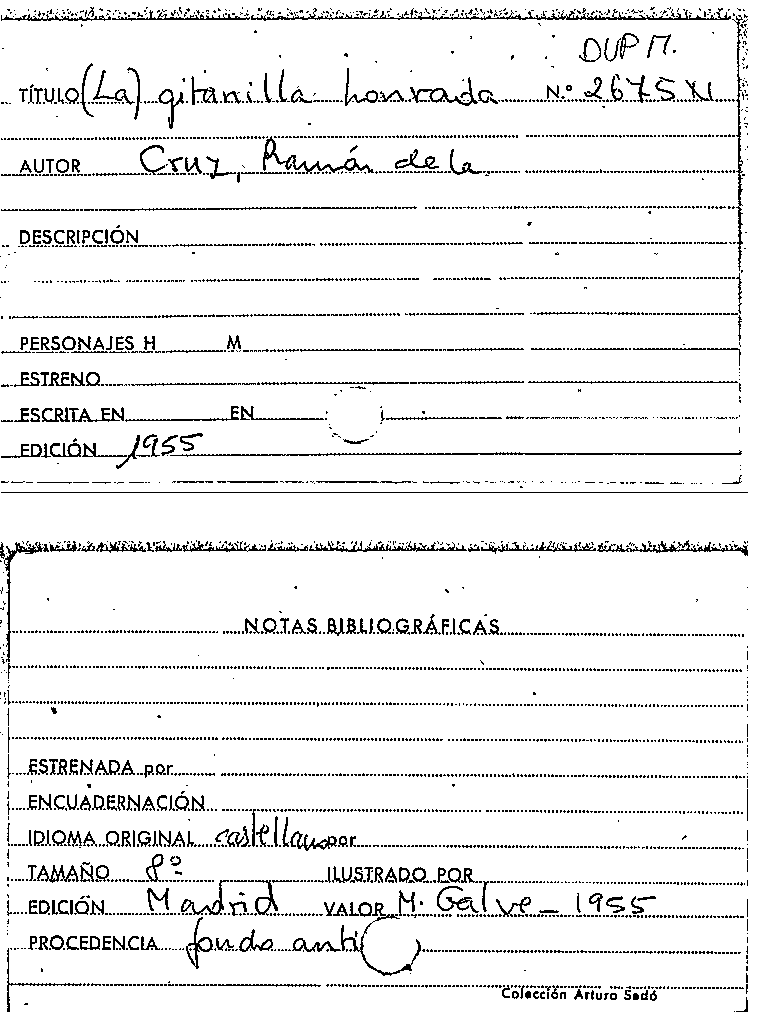 DUP M.
TÍTULO (La) gitanilla honrada Nº 2675 XI
AUTOR Cruz, Ramón de la
DESCRIPCIÓN
PERSONAJES H M
ESTRENO
ESCRITA EN EN
EDICIÓN 1955
NOTAS BIBLIOGRÁFICAS
ESTRENADA por
ENCUADERNACIÓN
IDIOMA ORIGINAL castellano por
TAMAÑO 8º ILUSTRADO POR
EDICIÓN Madrid VALOR M. Galve - 1955
PROCEDENCIA fondo anti
Colección Arturo Sedó